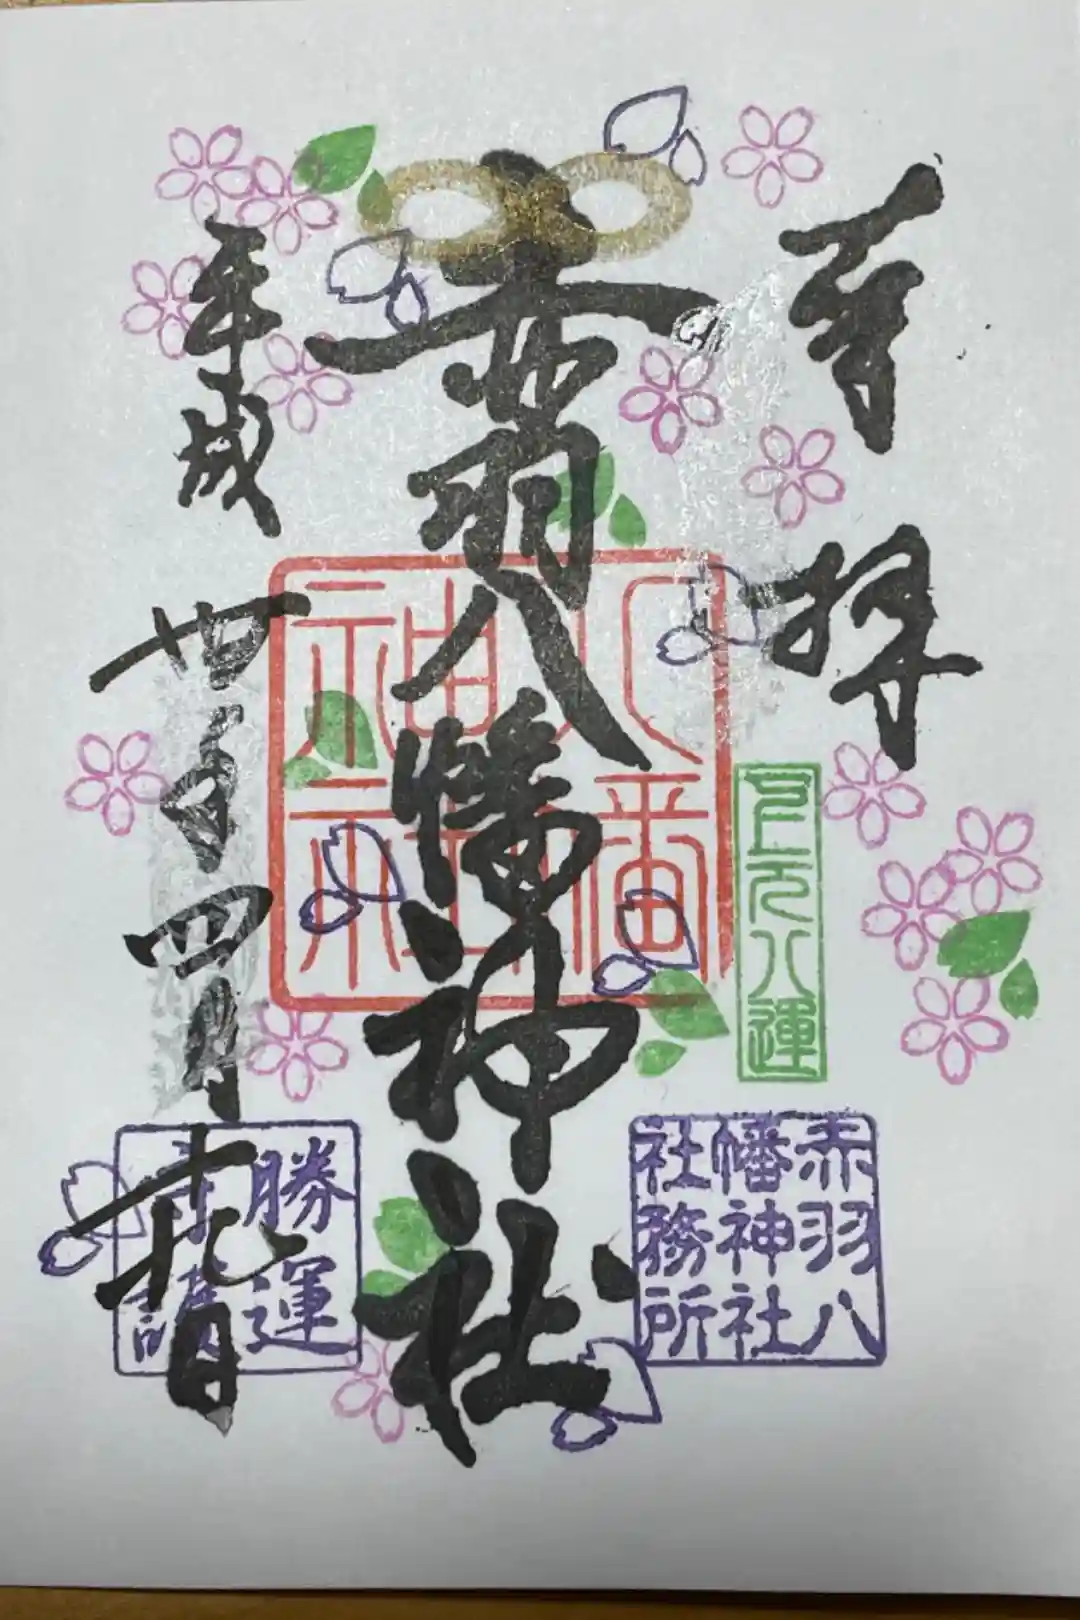 奉拝
赤羽八幡神社
平成卅一年四月十九日
八幡
神社
開運
赤羽八
幡神社
社務所
勝運
守護